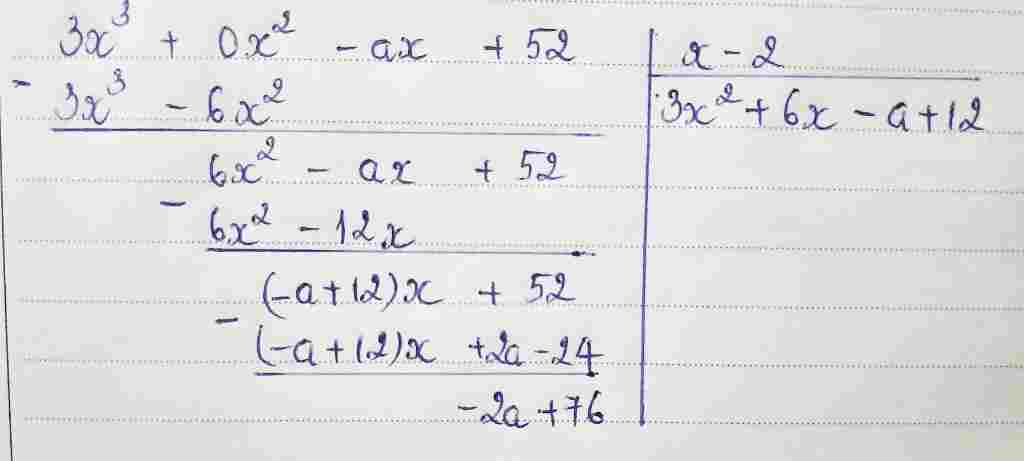 3x³ + 0x² - ax + 52 | x - 2
- 3x³ - 6x² | 3x² + 6x - a + 12
6x² - ax + 52
- 6x² - 12x
(-a+12)x + 52
- (-a+12)x + 2a - 24
-2a + 76